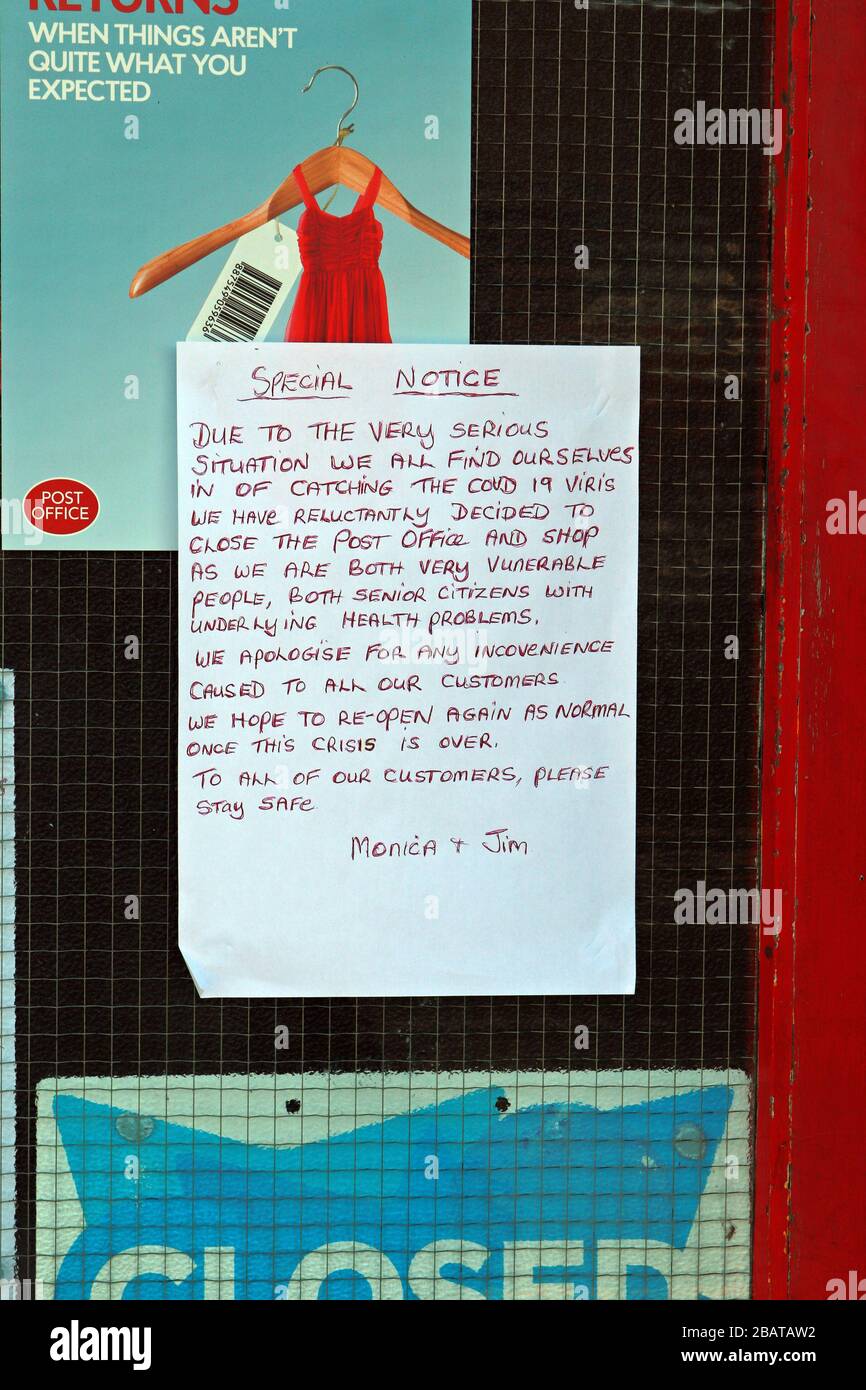 RETURNS
WHEN THINGS AREN'T
QUITE WHAT YOU
EXPECTED
887549059636
POST
OFFICE
SPECIAL NOTICE
DUE TO THE VERY SERIOUS
SITUATION WE ALL FIND OURSELVES
IN OF CATCHING THE COVD 19 VIRIS
WE HAVE RELUCTANTLY DECIDED TO
CLOSE THE POST OFFICE AND SHOP
AS WE ARE BOTH VERY VUNERABLE
PEOPLE, BOTH SENIOR CITIZENS WITH
UNDERLYING HEALTH PROBLEMS.
WE APOLOGISE FOR ANY INCOVENIENCE
CAUSED TO ALL OUR CUSTOMERS
WE HOPE TO RE-OPEN AGAIN AS NORMAL
ONCE THIS CRISIS IS OVER.
TO ALL OF OUR CUSTOMERS, PLEASE
STAY SAFE
MONICA + JIM
CLOSED
alamy
Image ID: 2BATAW2
www.alamy.com